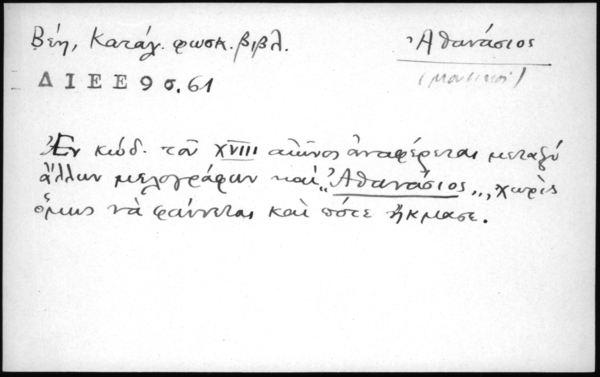 Βέη, Κατάγ. φωσκ. βιβλ.
Ἀθανάσιος
(μουσικοί)
ΔΙΕΕ 9 σ. 61
Ἐν κώδ. τοῦ XVIII αἰῶνος ἀναφέρεται μεταξύ
ἄλλων μελογράφων καί „Ἀθανάσιος„, χωρὶς
ὅμως νὰ φαίνεται καὶ πότε ἤκμασε.